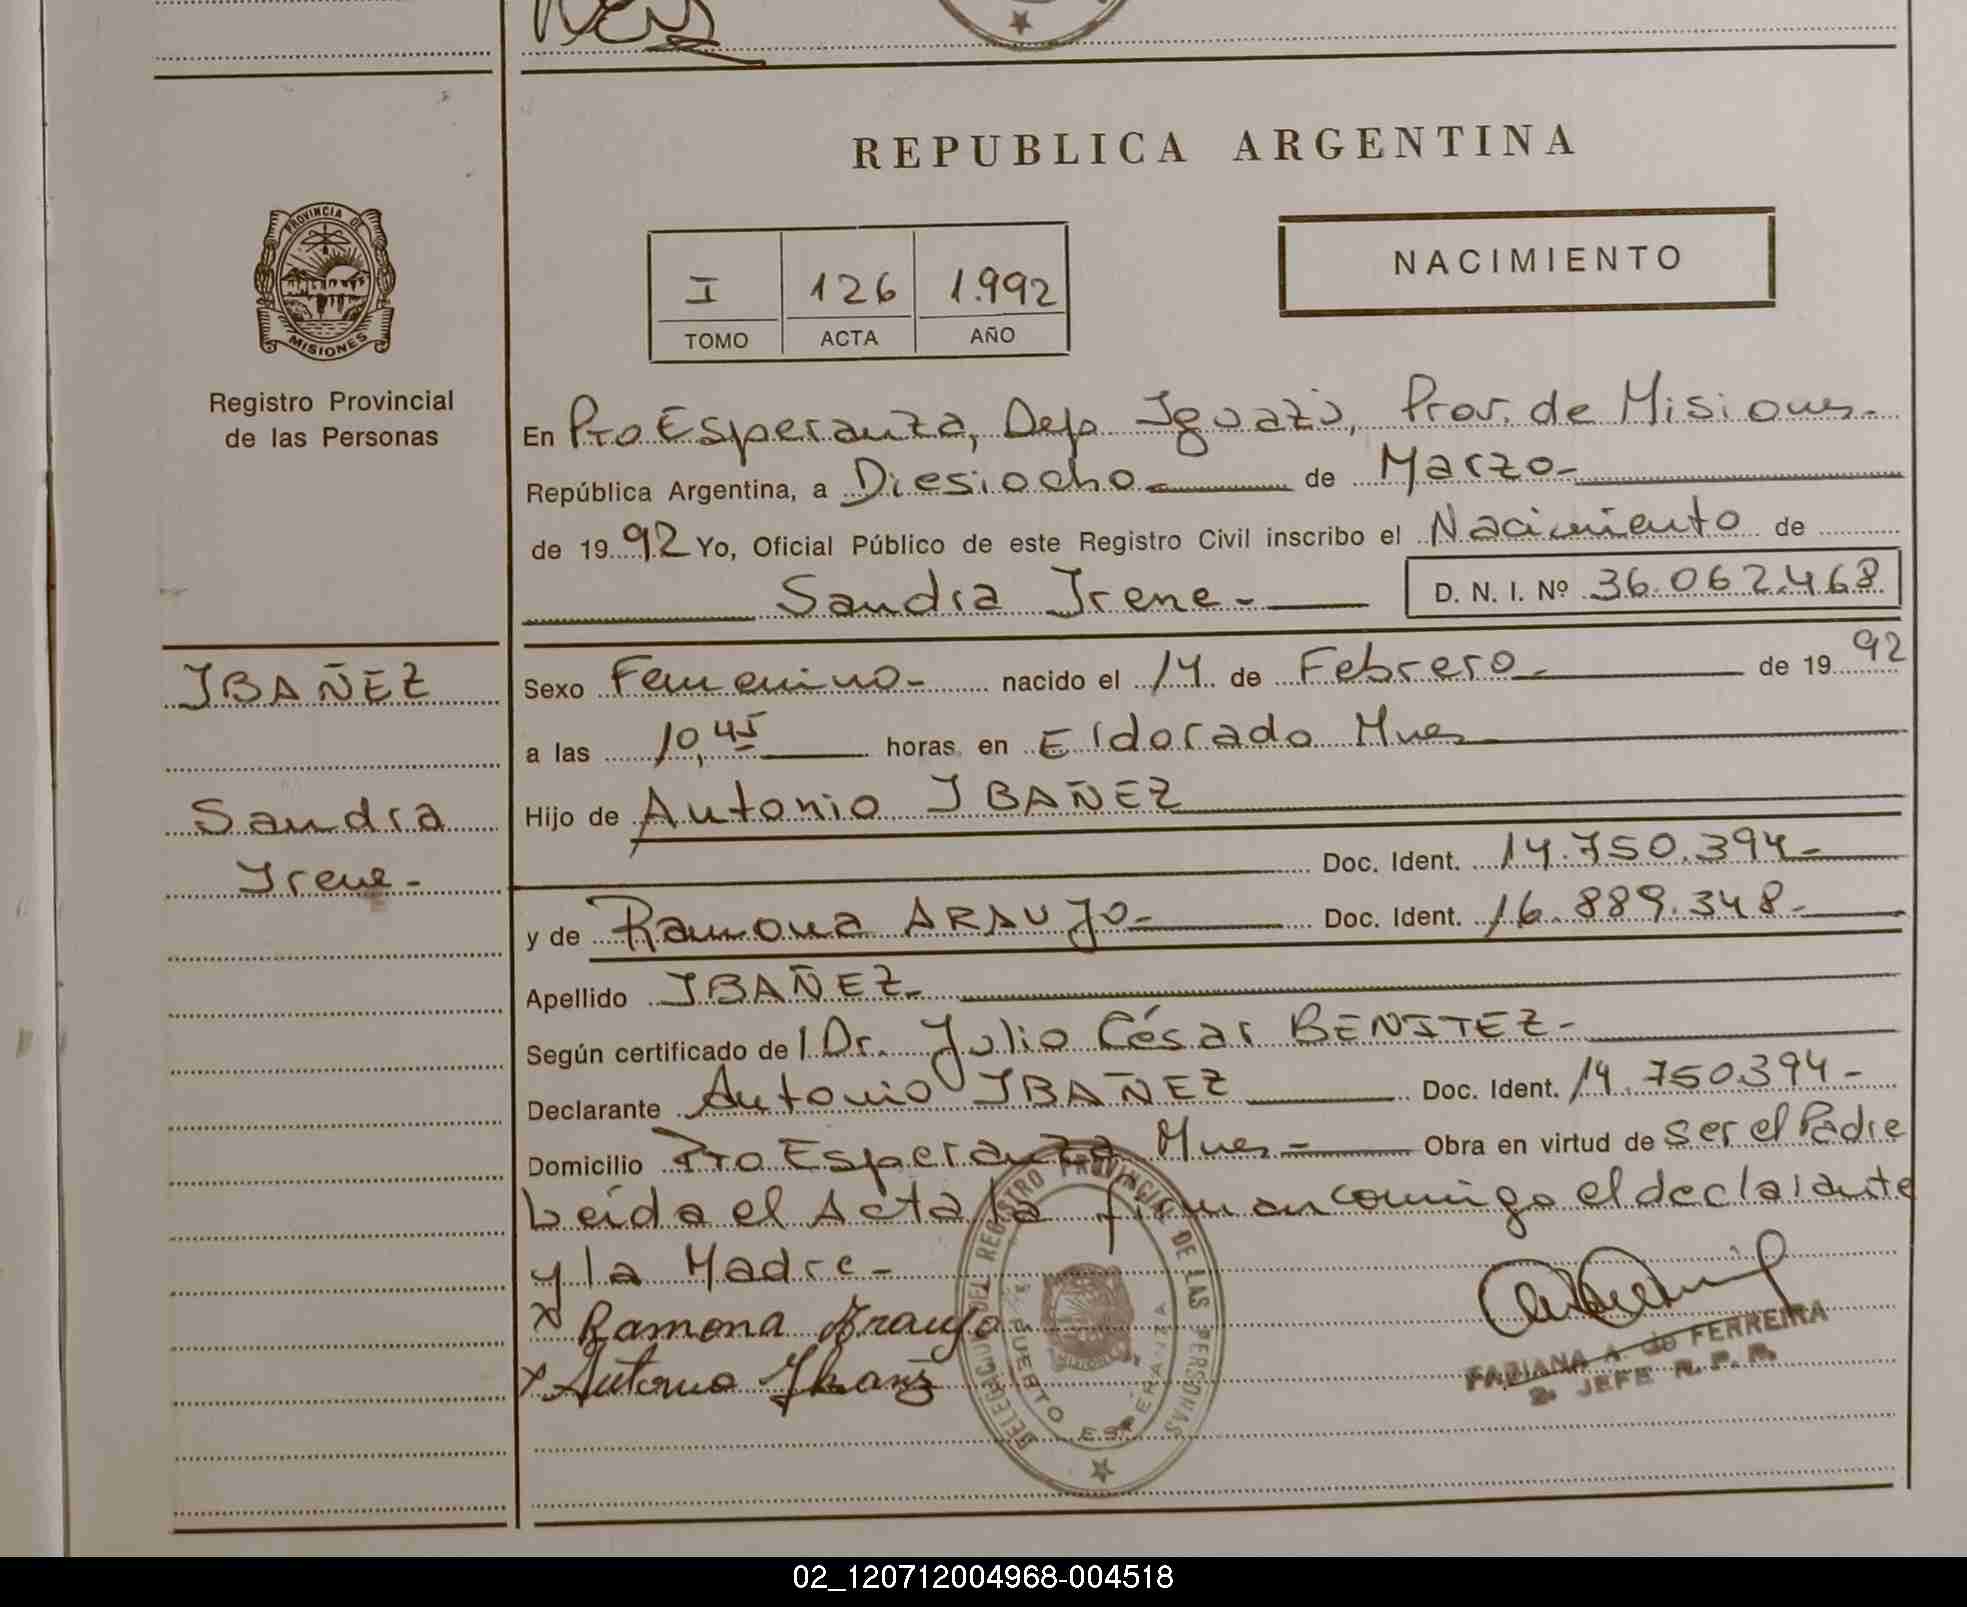 REPUBLICA ARGENTINA
PROVINCIA DE
MISIONES
Registro Provincial
de las Personas
I 126 1.992
TOMO ACTA AÑO
NACIMIENTO
En Pto Esperanza, Dep. Iguazú, Prov. de Misiones.
República Argentina, a Diesiocho de Marzo
de 1992 Yo, Oficial Público de este Registro Civil inscribo el Nacimiento de
Sandra Irene
D. N. I. Nº 36.062.468
IBAÑEZ
Sandra
Irene
Sexo Femenino nacido el 14 de Febrero de 1992
a las 10,45 horas en Eldorado Mnes
Hijo de Antonio IBAÑEZ
Doc. Ident. 14.750.394
y de Ramona ARAUJO Doc. Ident. 16.889.348
Apellido IBAÑEZ
Según certificado de l Dr. Julio César BENITEZ
Declarante Antonio IBAÑEZ Doc. Ident. 14.750394
Domicilio Pto Esperanza Mnes Obra en virtud de ser el Padre
Leída el Acta la firman comigo el declarante
y la Madre
x Ramona Araujo
x Antonio Ibañz
DELEGACION DEL REGISTRO PROVINCIAL DE LAS PERSONAS
PUERTO ESPERANZA
FABIANA A. de FERREIRA
2º JEFE R. P. P.
02_120712004968-004518